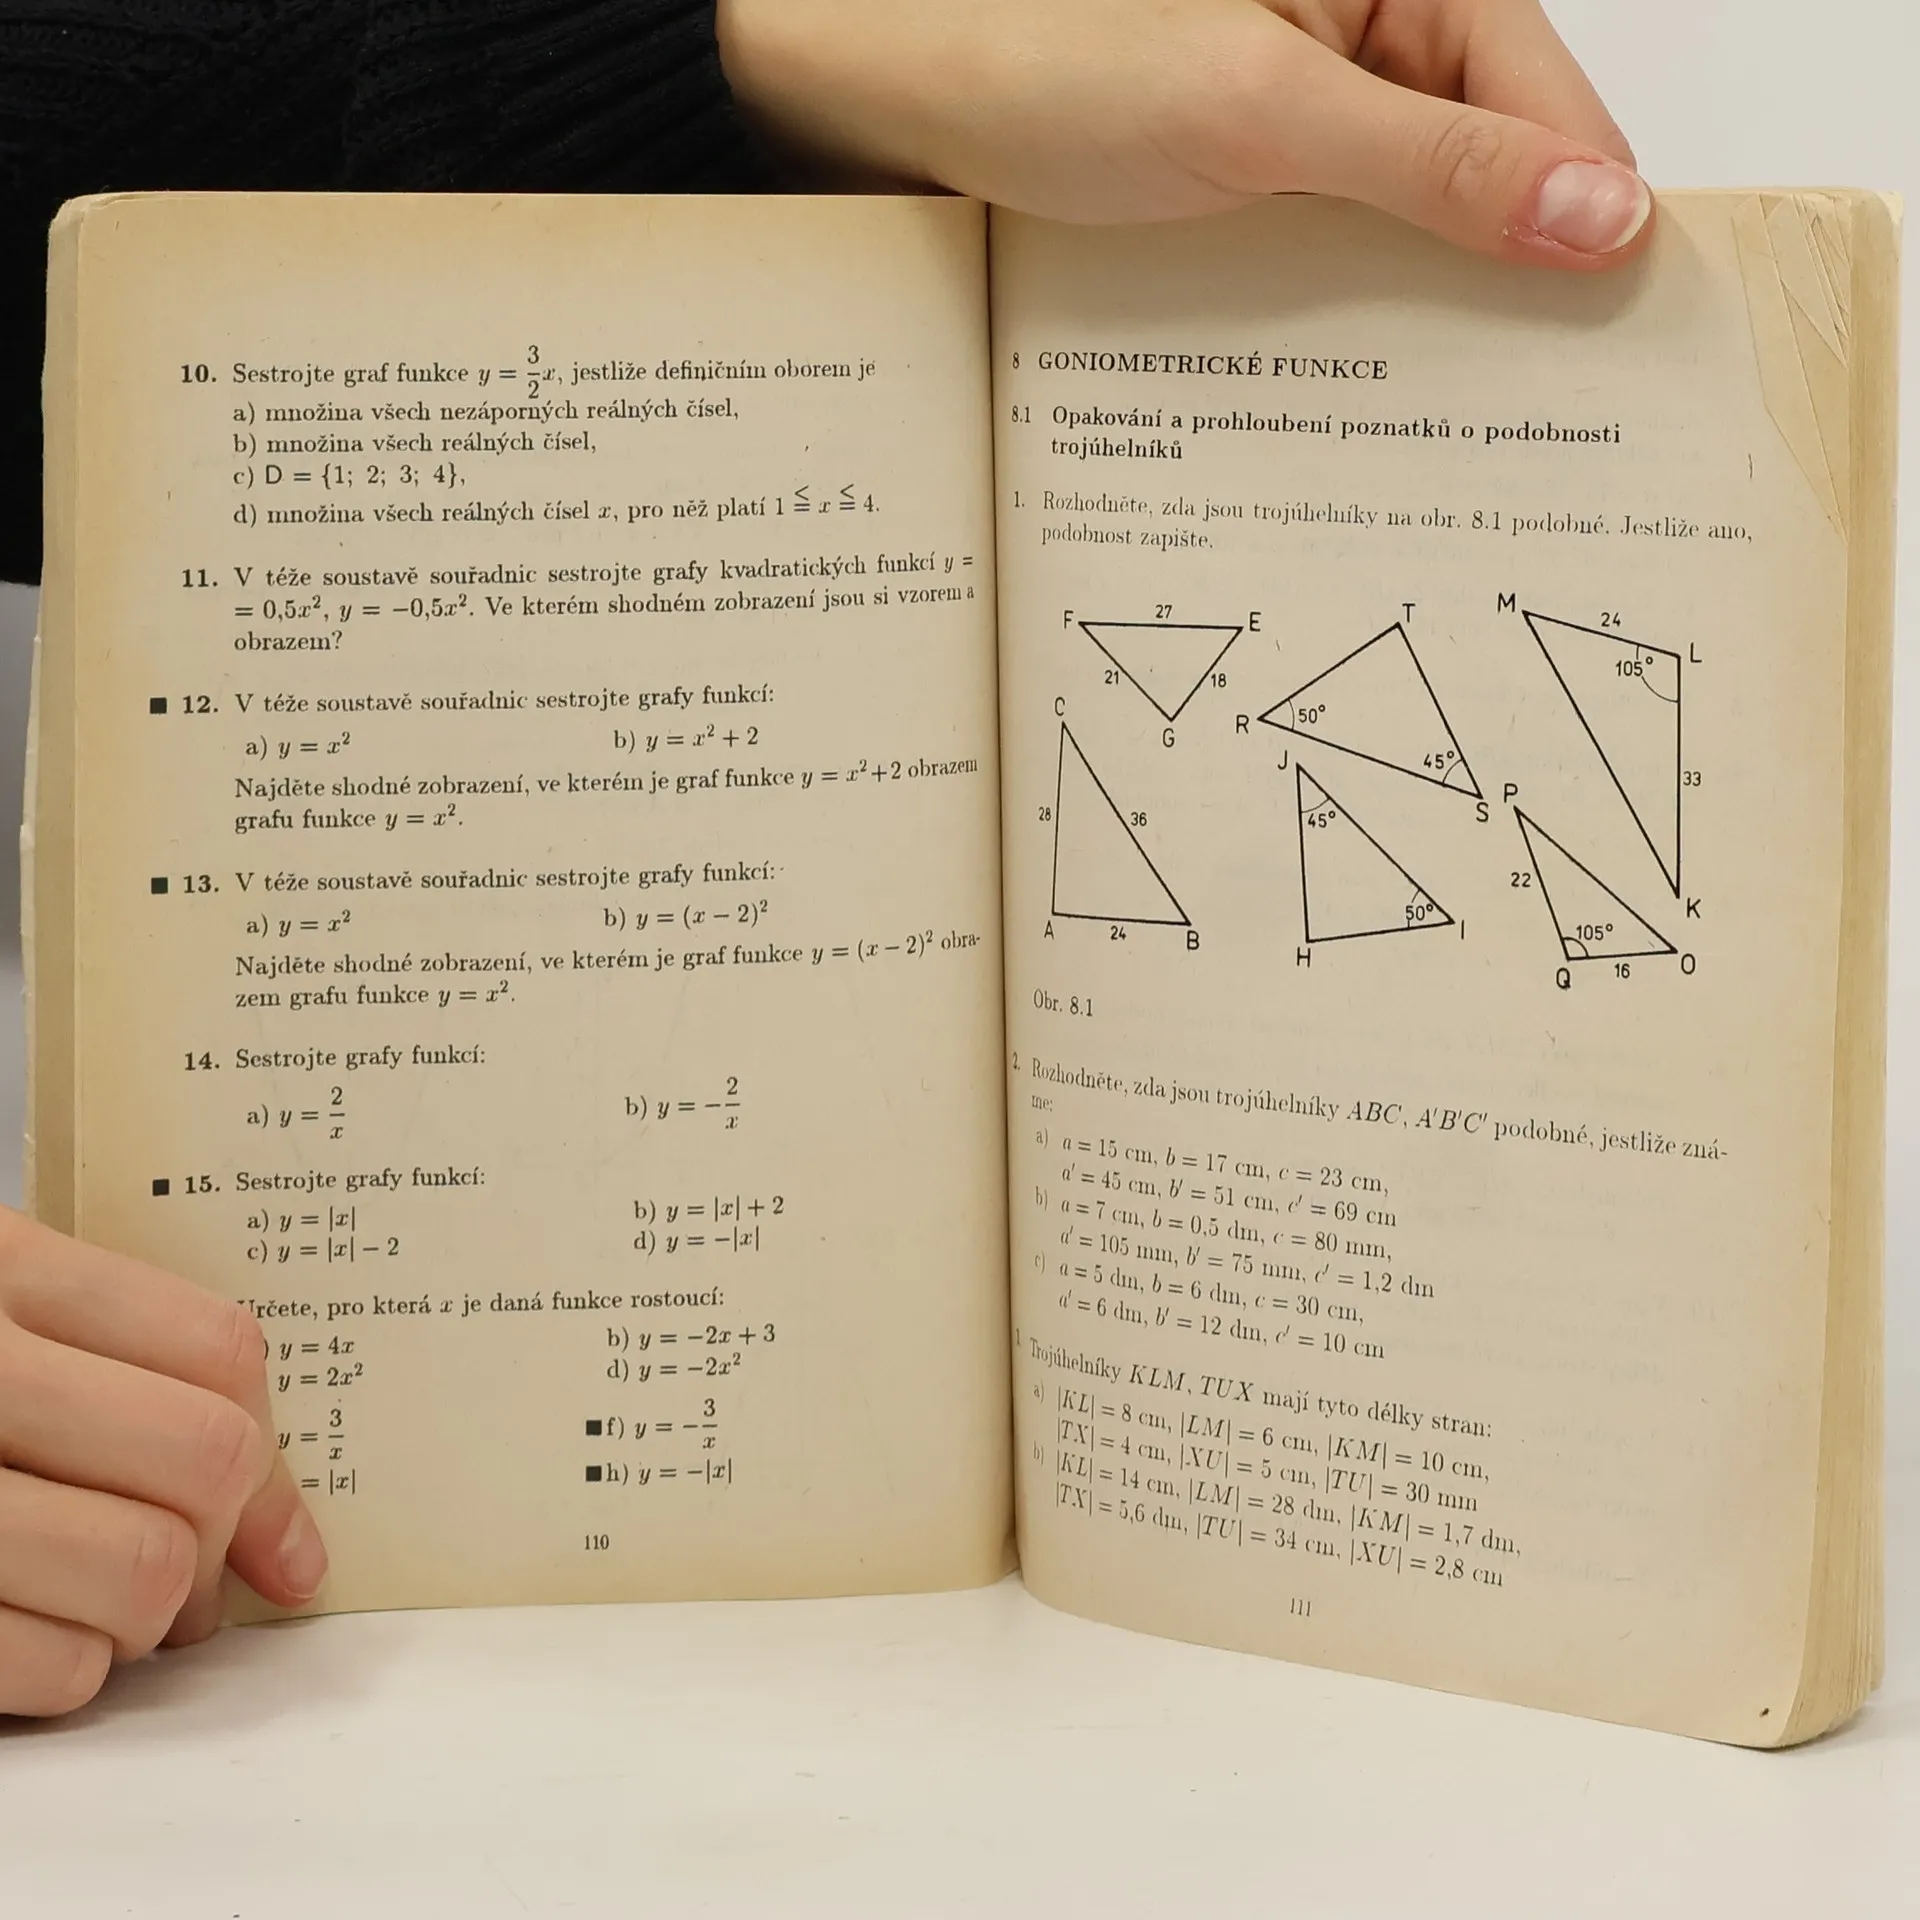 10. Sestrojte graf funkce y = 3/2 x, jestliže definičním oborem je
a) množina všech nezáporných reálných čísel,
b) množina všech reálných čísel,
c) D = {1; 2; 3; 4},
d) množina všech reálných čísel x, pro něž platí 1 ≦ x ≦ 4.
11. V téže soustavě souřadnic sestrojte grafy kvadratických funkcí y =
= 0,5x², y = −0,5x². Ve kterém shodném zobrazení jsou si vzorem a
obrazem?
■ 12. V téže soustavě souřadnic sestrojte grafy funkcí:
a) y = x² b) y = x² + 2
Najděte shodné zobrazení, ve kterém je graf funkce y = x²+2 obrazem
grafu funkce y = x².
■ 13. V téže soustavě souřadnic sestrojte grafy funkcí:
a) y = x² b) y = (x − 2)²
Najděte shodné zobrazení, ve kterém je graf funkce y = (x − 2)² obra-
zem grafu funkce y = x².
14. Sestrojte grafy funkcí:
a) y = 2/x b) y = −2/x
■ 15. Sestrojte grafy funkcí:
a) y = |x| b) y = |x| + 2
c) y = |x| − 2 d) y = −|x|
Určete, pro která x je daná funkce rostoucí:
) y = 4x b) y = −2x + 3
y = 2x² d) y = −2x²
y = 3/x ■ f) y = −3/x
= |x| ■ h) y = −|x|
110
8 GONIOMETRICKÉ FUNKCE
8.1 Opakování a prohloubení poznatků o podobnosti
trojúhelníků
1. Rozhodněte, zda jsou trojúhelníky na obr. 8.1 podobné. Jestliže ano,
podobnost zapište.
F 27 E
21 18
G
C
28 36
A 24 B
T
R 50°
45°
S
J
45°
50°
H I
M 24
105° L
33
K
P
22
105°
Q 16 O
Obr. 8.1
2. Rozhodněte, zda jsou trojúhelníky ABC, A′B′C′ podobné, jestliže zná-
me:
a) a = 15 cm, b = 17 cm, c = 23 cm,
a′ = 45 cm, b′ = 51 cm, c′ = 69 cm
b) a = 7 cm, b = 0,5 dm, c = 80 mm,
a′ = 105 mm, b′ = 75 mm, c′ = 1,2 dm
c) a = 5 dm, b = 6 dm, c = 30 cm,
a′ = 6 dm, b′ = 12 dm, c′ = 10 cm
Trojúhelníky KLM, TUX mají tyto délky stran:
a) |KL| = 8 cm, |LM| = 6 cm, |KM| = 10 cm,
|TX| = 4 cm, |XU| = 5 cm, |TU| = 30 mm
b) |KL| = 14 cm, |LM| = 28 dm, |KM| = 1,7 dm,
|TX| = 5,6 dm, |TU| = 34 cm, |XU| = 2,8 cm
111